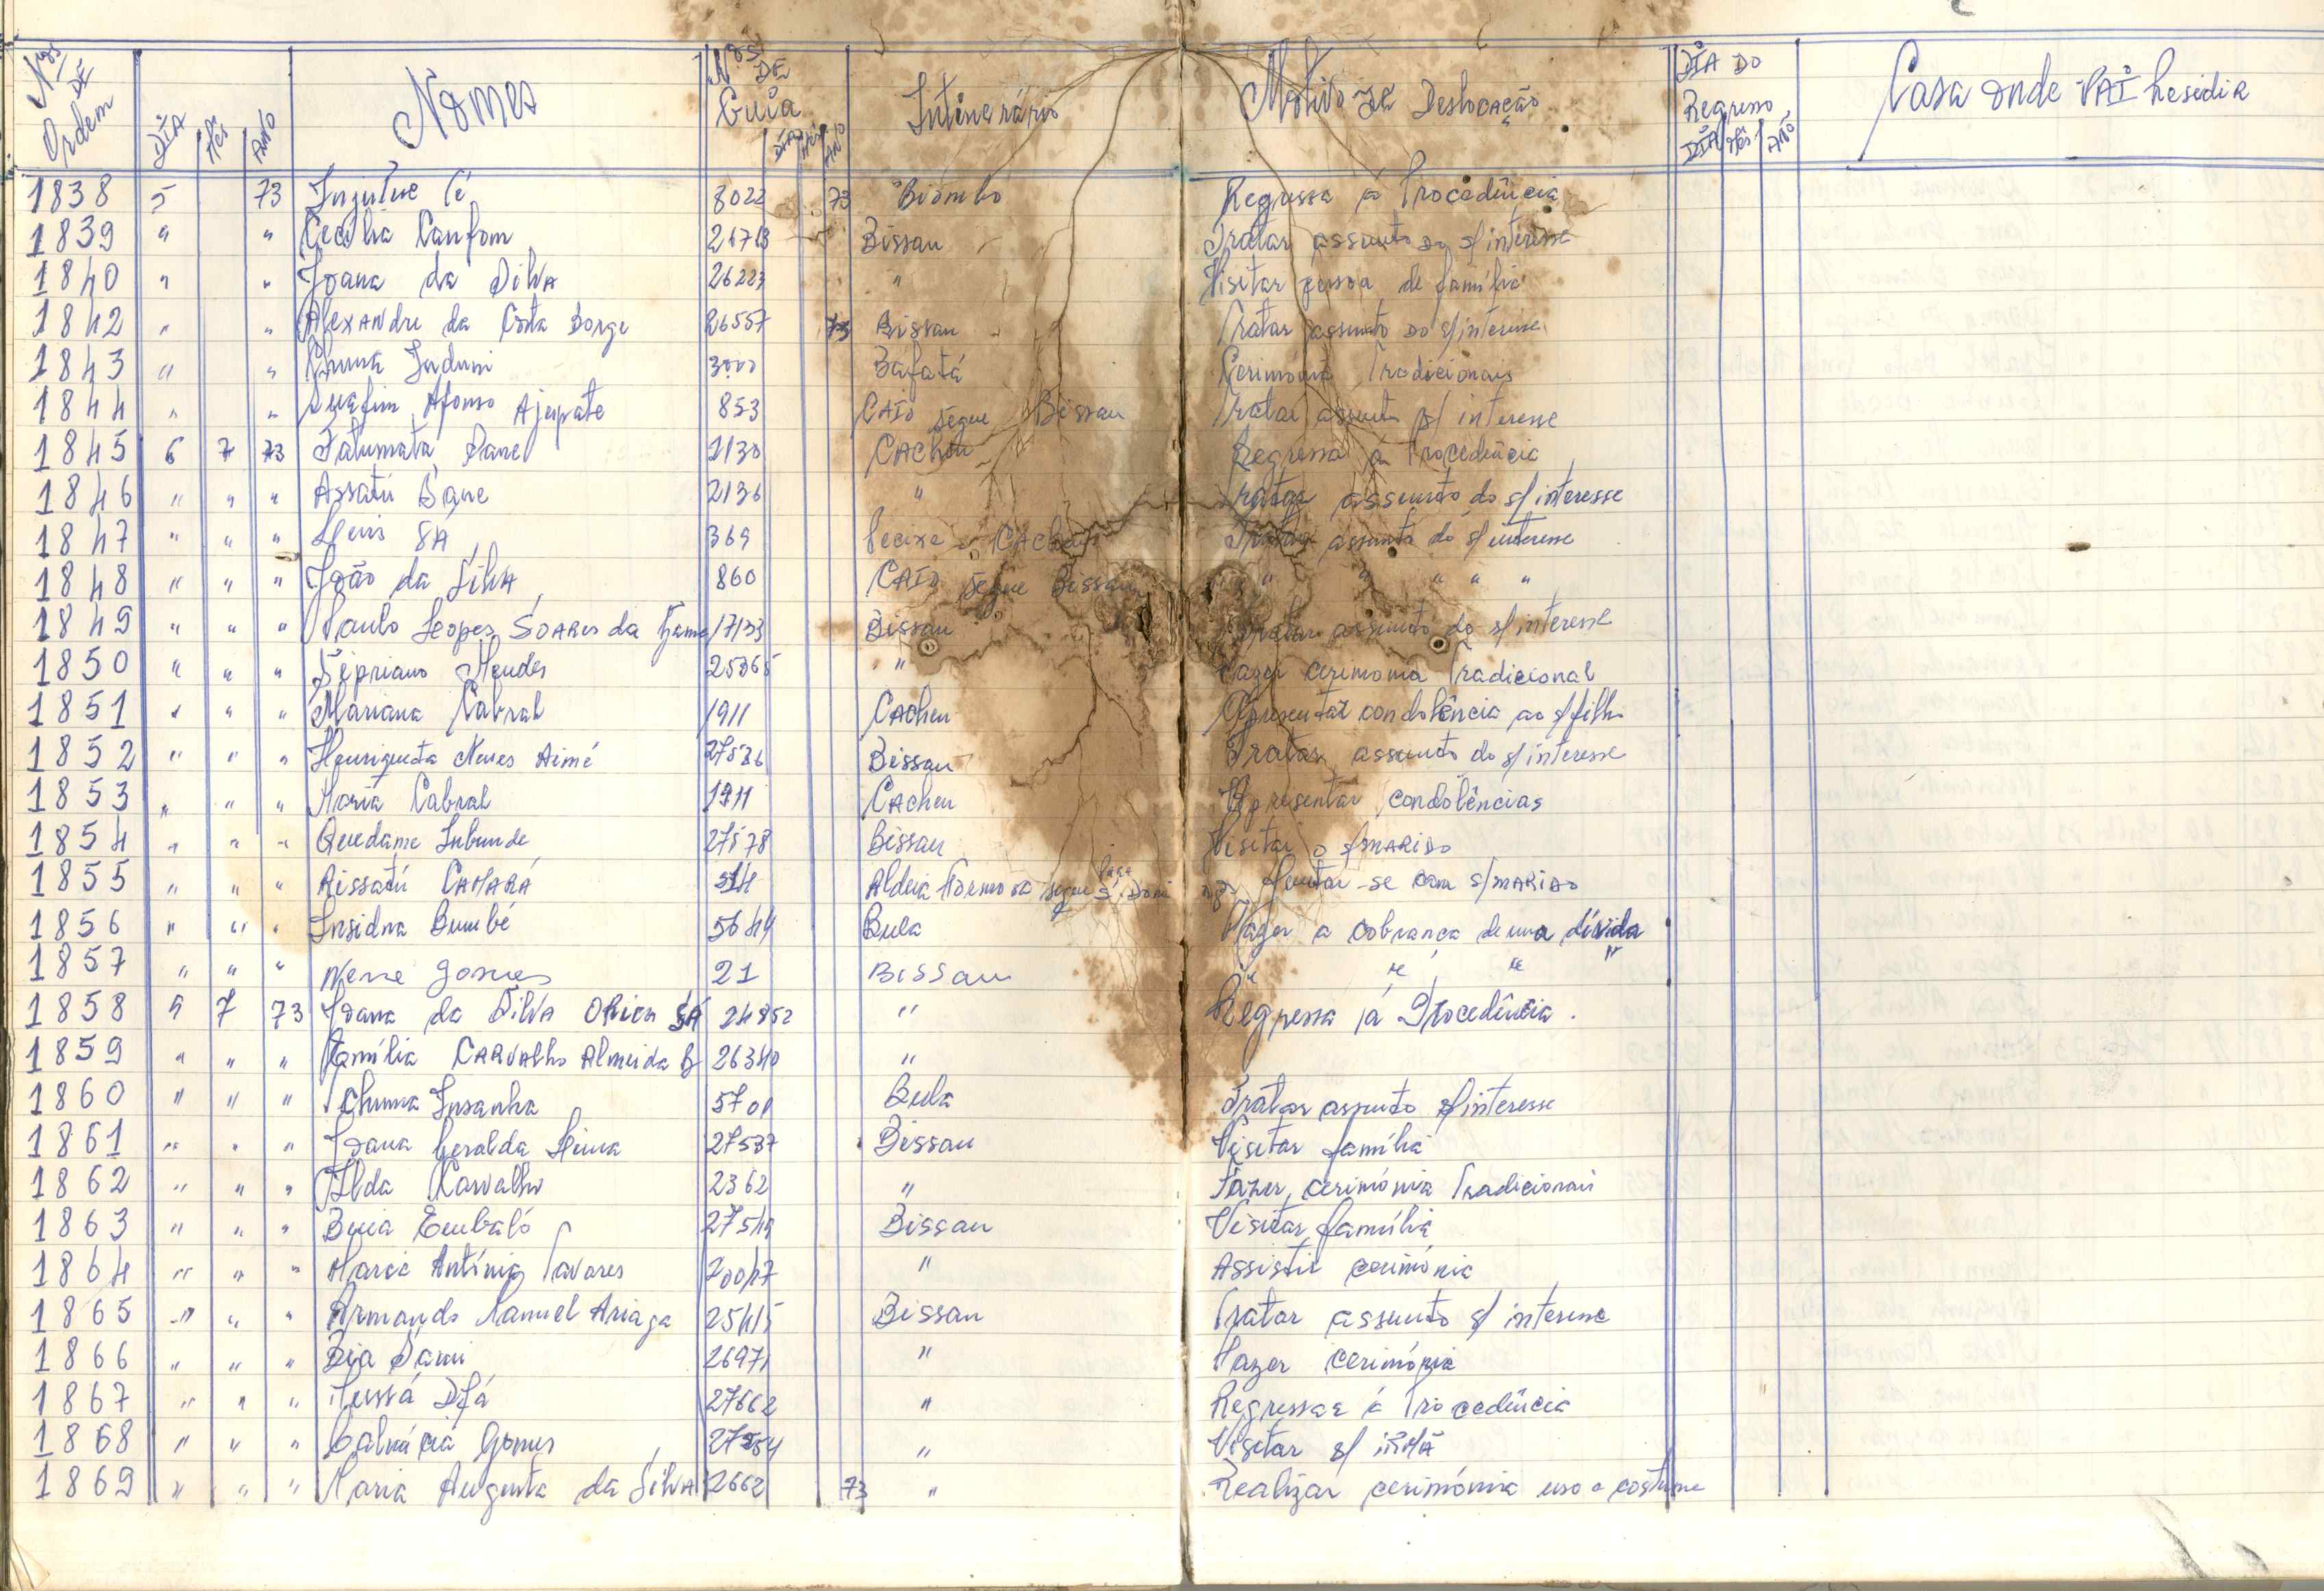 Nºs DE Ordem DIA Mês ANO Nomes Nºs DE Guia DIA Mês ANO Intinerário Motivo DE Deslocação DIA DO Regresso DIA Mês ANO Casa onde VAI Residir
1838 5 73 Injutue Cé 8022 73 Biombo Regressa á Procedência
1839 " " Cecília Canfom Bissau Tratar assunto do s/interesse
1840 " " Joana da Silva 26223 " Visitar pessoa de família
1842 " " Alexandre da Costa Borge 26557 73 Bissau Tratar assunto do s/interesse
1843 " " Induni 3000 Bafatá Cerimónia Tradicionais
1844 " " Serafim Afonso Ajupate 853 CAIO segue Bissau Tratar assunto s/ interesse
1845 6 7 73 Fatumata Sane 2130 CAcheu Regressa á Procedência
1846 " " " Assatú Sane 2136 " Tratar assunto do s/interesse
1847 " " " SÁ 369 Pecixe CAcheu Tratar assunto do s/interesse
1848 " " " João da Silva 860 CAIO segue Bissau " " " " "
1849 " " " Paulo Lopes SOARes da Gama 17133 Bissau Tratar assunto do s/interesse
1850 " " " Sipriano Mendes 25365 " Fazer cerimonia Tradicional
1851 " " " Mariana Cabral 1911 CAcheu Apresentar condolência ao s/filho
1852 " " " Henriqueta Neves Aimé 27536 Bissau Tratar assunto do s/interesse
1853 " " " Maria Cabral 1911 CAcheu Apresentar condolências
1854 " " " Quedame Inbunde 27578 Bissau Visitar o s/MARIDO
1855 " " " Aissatú CAMARÁ Aldeia Formosa segue para S. Domingos Juntar-se com s/MARIDO
1856 " " " Insidna Bumbé 5644 Bula Fazer a cobrança de uma dívida
1857 " " " Nene Gomes 21 Bissau " " " "
1858 9 7 73 Joana da Silva SÁ 24852 " Regressa á Procedência.
1859 " " " Família CARVALho Almeida 26340 "
1860 " " " Chuma Insanha 5701 Bula Tratar assunto s/interesse
1861 " " " Joana Geralda 27537 Bissau Visitar família
1862 " " " Ilda Karvalho 2362 " Fazer cerimónia Tradicionais
1863 " " " Buia Embaló 27549 Bissau Visitar família
1864 " " " Maria Antónia Tavares 20047 " Assistir cerimónia
1865 " " " Armando Manuel Ariaga 25415 Bissau Tratar assunto s/ interesse
1866 " " " Bia Sami 26971 " Fazer cerimónia
1867 " " " Mussá Djá 27662 " Regressar á Procedência
1868 " " " Gomes " Visitar s/ irmÃ
1869 " " " Maria Augusta da Silva 2662 73 " Realizar cerimónia uso e costume